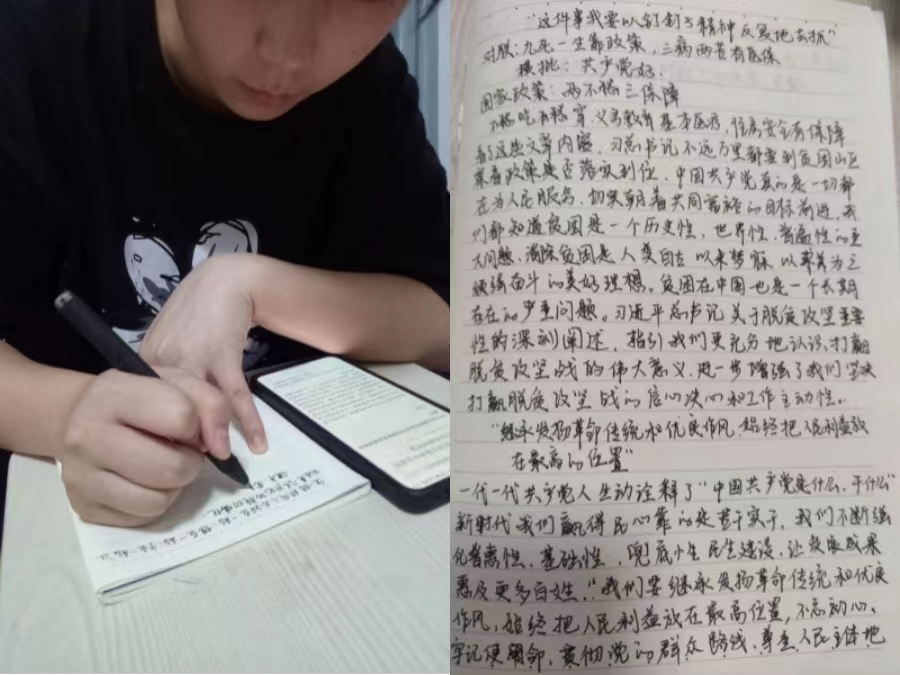 "这件事我要以钉钉子精神反复地去抓"
对联：九死一生靠政策，三病两苦有医保
横批：共产党好。
国家政策：两不愁三保障
不愁吃、不愁穿、义务教育、基本医疗、住房安全有保障
看了这些文章内容，习总书记不远万里都要到贫困山区
来看政策是否落实到位，中国共产党真的是一切都
在为人民服务，切实朝着共同富裕的目标前进，我
们都知道贫困是一个历史性、世界性、普遍性的重
大问题，消除贫困是人类自古以来梦寐以求并为之
顽强奋斗的美好理想。贫困在中国也是一个长期
存在的严重问题。习近平总书记关于脱贫攻坚重要
性的深刻阐述，指引我们更充分地认识，打赢
脱贫攻坚战的伟大意义，进一步增强了我们坚决
打赢脱贫攻坚战的信心决心和工作主动性。
"继承发扬革命传统和优良作风，始终把人民利益放
在最高的位置"
一代一代共产党人生动诠释了"中国共产党是什么、干什么"
新时代我们赢得民心靠的是苦干实干，我们不断强
化普惠性、基础性、兜底性民生建设，让发展成果
惠及更多百姓。"我们要继承发扬革命传统和优良
作风，始终把人民利益放在最高位置，不忘初心、
牢记使命，贯彻党的群众路线，尊重人民主体地